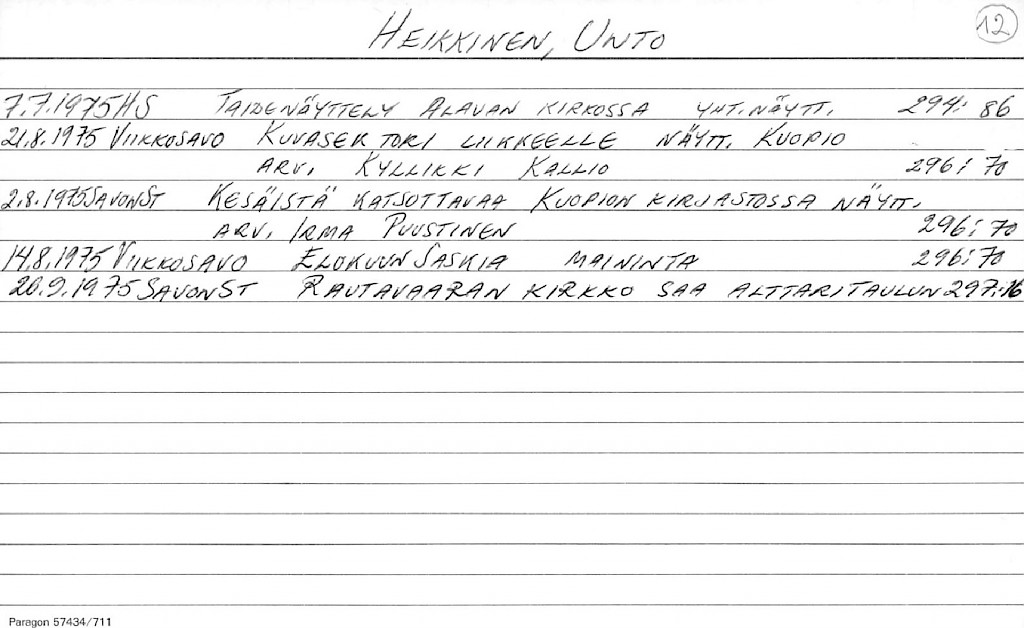 HEIKKINEN, UNTO 12
7.7.1975 HS TAIDENÄYTTELY ALAVAN KIRKOSSA YHT.NÄYTT. 294: 86
21.8.1975 VIIKKOSAVO KUVASEKTORI LIIKKEELLE NÄYTT. KUOPIO
ARV. KYLLIKKI KALLIO 296: 70
2.8.1975 SAVONST KESÄISTÄ KATSOTTAVAA KUOPION KIRJASTOSSA NÄYTT.
ARV. IRMA PUUSTINEN 296: 70
14.8.1975 VIIKKOSAVO ELOKUUN SASKIA MAININTA 296: 70
20.9.1975 SAVONST RAUTAVAARAN KIRKKO SAA ALTTARITAULUN 297:16
Paragon 57434/711